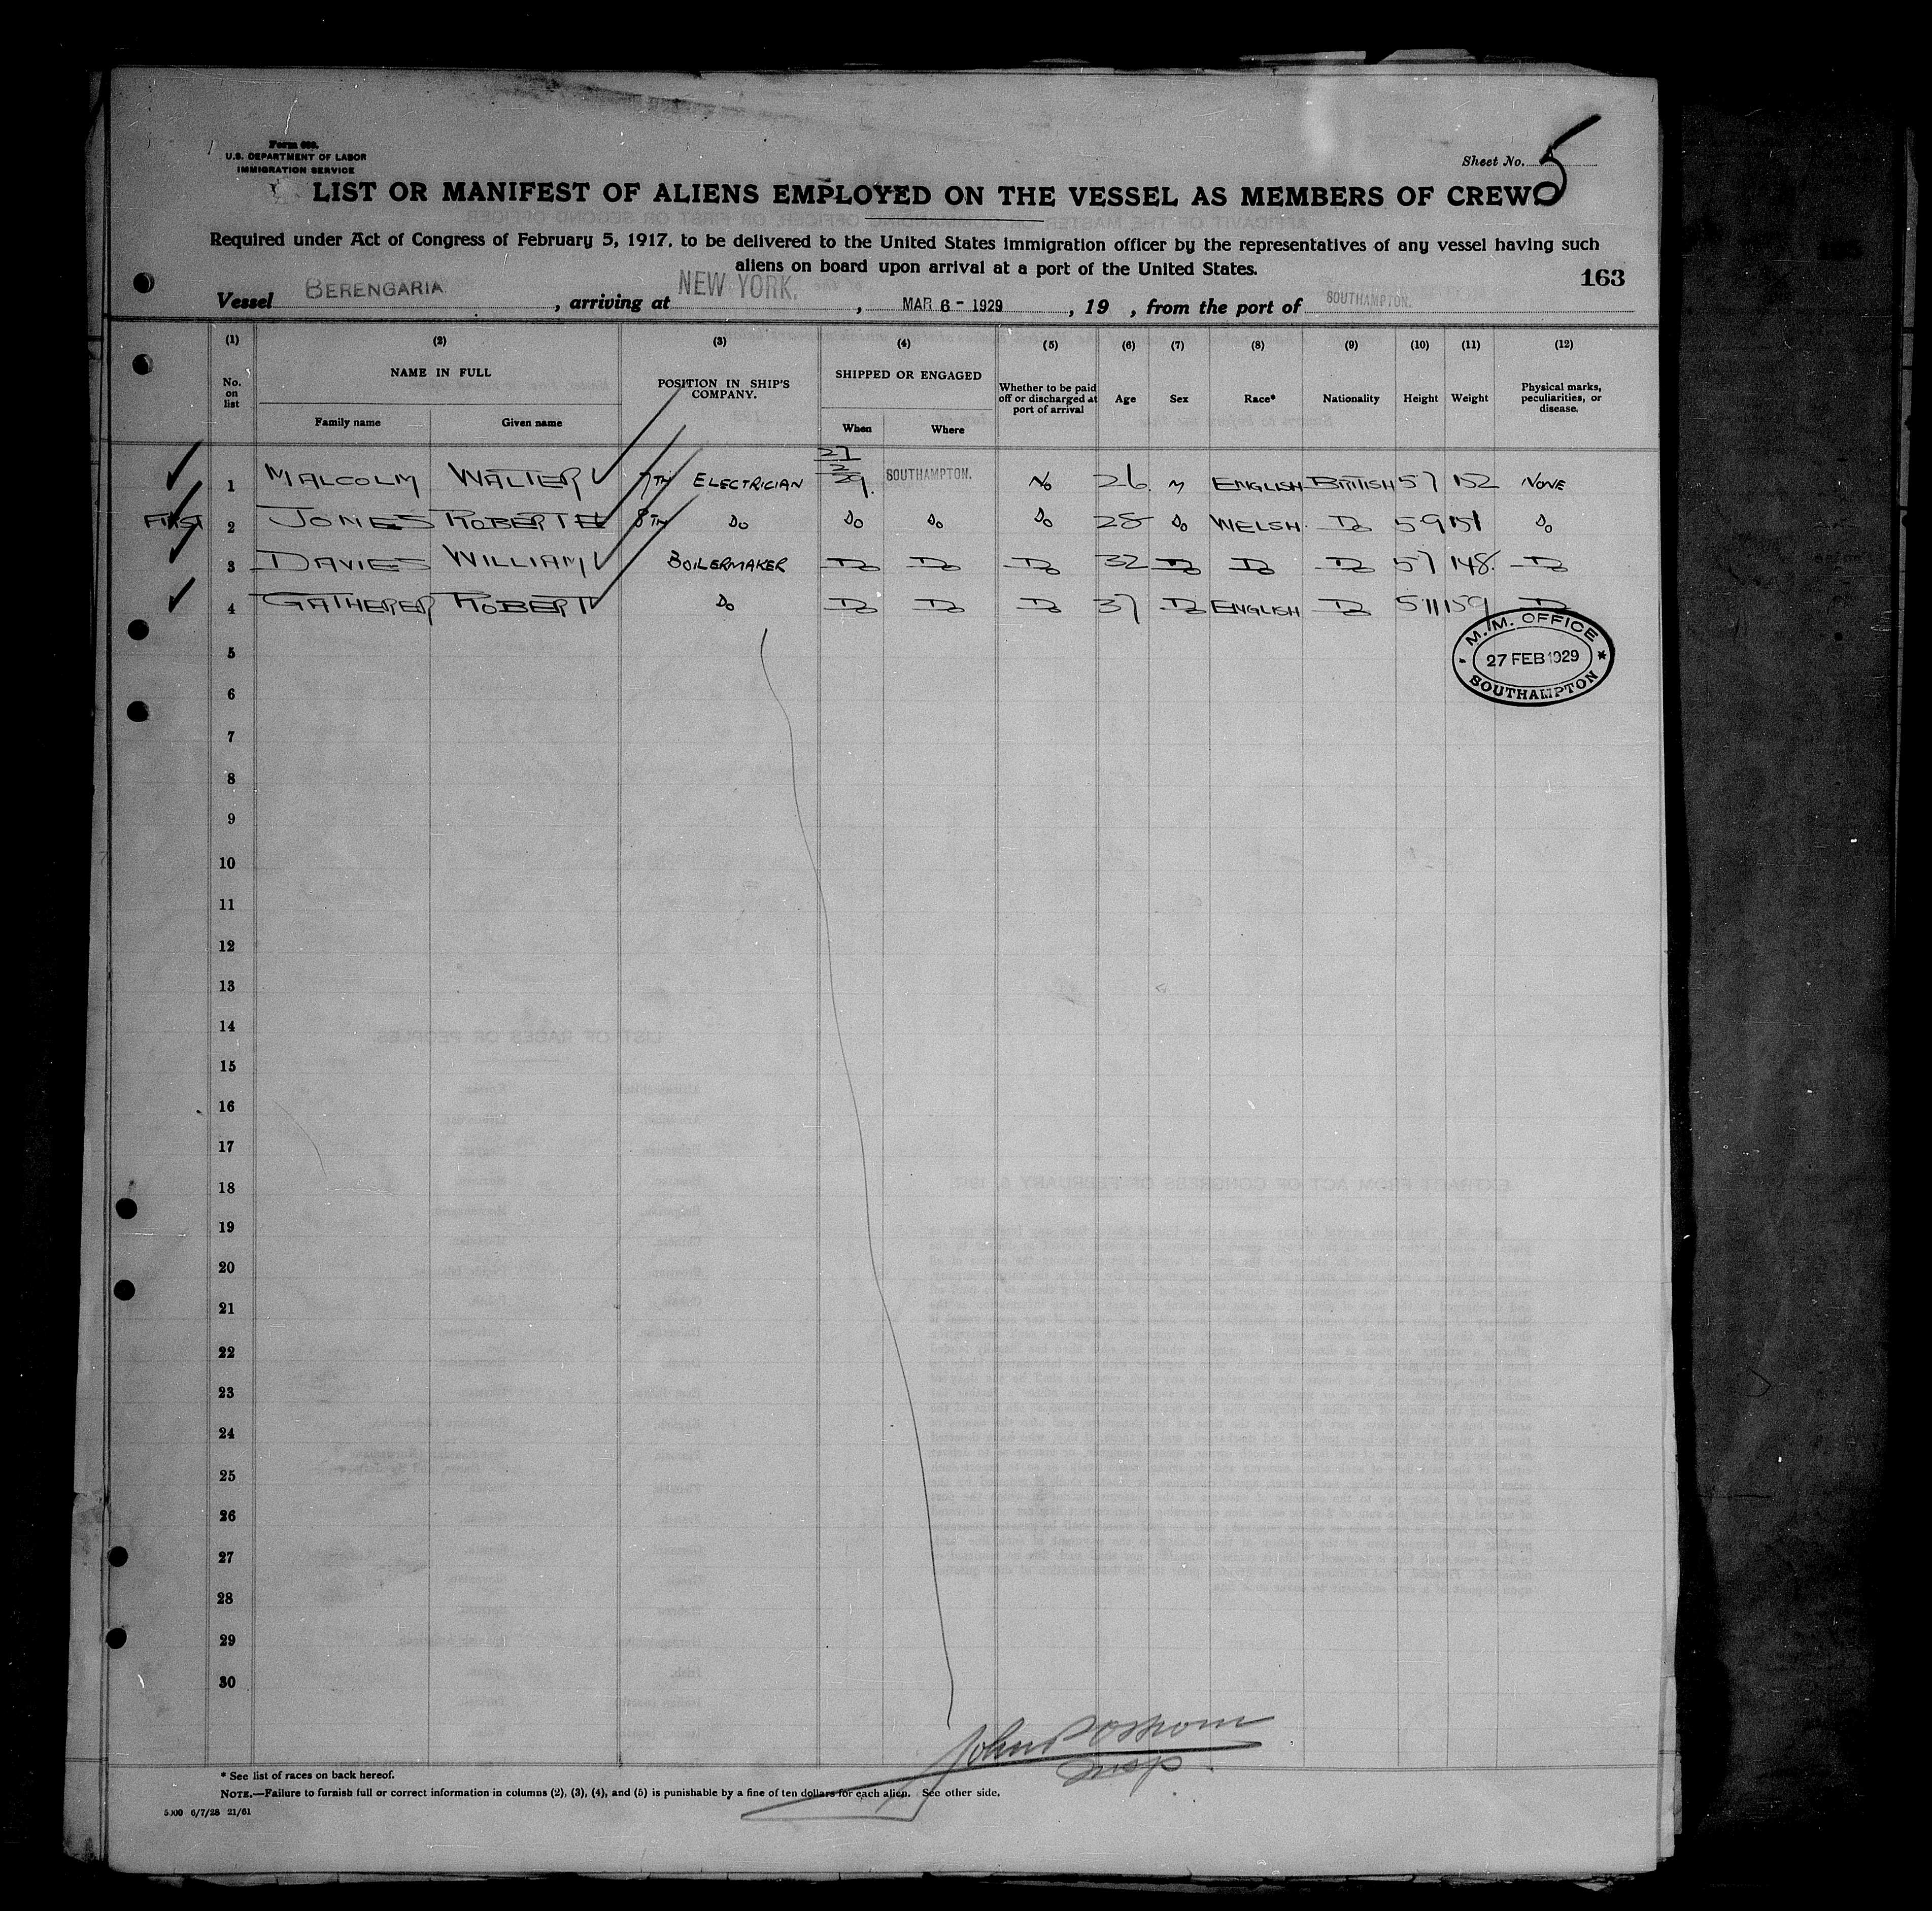 Form 680.
U.S. DEPARTMENT OF LABOR
IMMIGRATION SERVICE
Sheet No. 5
LIST OR MANIFEST OF ALIENS EMPLOYED ON THE VESSEL AS MEMBERS OF CREW
Required under Act of Congress of February 5, 1917, to be delivered to the United States immigration officer by the representatives of any vessel having such
aliens on board upon arrival at a port of the United States.
163
Vessel BERENGARIA, arriving at NEW YORK., MAR 6 - 1929, 19 , from the port of SOUTHAMPTON.
(1) (2) (3) (4) (5) (6) (7) (8) (9) (10) (11) (12)
No. on list NAME IN FULL POSITION IN SHIP'S COMPANY. SHIPPED OR ENGAGED Whether to be paid off or discharged at port of arrival Age Sex Race* Nationality Height Weight Physical marks, peculiarities, or disease.
Family name Given name When Where
1 MALCOLM WALTER 7TH ELECTRICIAN 27/2/29. SOUTHAMPTON. No 26. M ENGLISH BRITISH 57 152 NONE
FIRST 2 JONES ROBERT H 8TH Do Do Do Do 28 Do WELSH. Do 59 151 Do
3 DAVIES WILLIAM BOILERMAKER Do Do Do 32 Do Do Do 57 148. Do
4 GATHERER ROBERT Do Do Do Do 37 Do ENGLISH Do 511 159 Do
M.M. OFFICE
27 FEB 1929
SOUTHAMPTON
5
6
7
8
9
10
11
12
13
14
15
16
17
18
19
20
21
22
23
24
25
26
27
28
29
30
John
Insp
* See list of races on back hereof.
NOTE.—Failure to furnish full or correct information in columns (2), (3), (4), and (5) is punishable by a fine of ten dollars for each alien. See other side.
5000 6/7/28 21/61